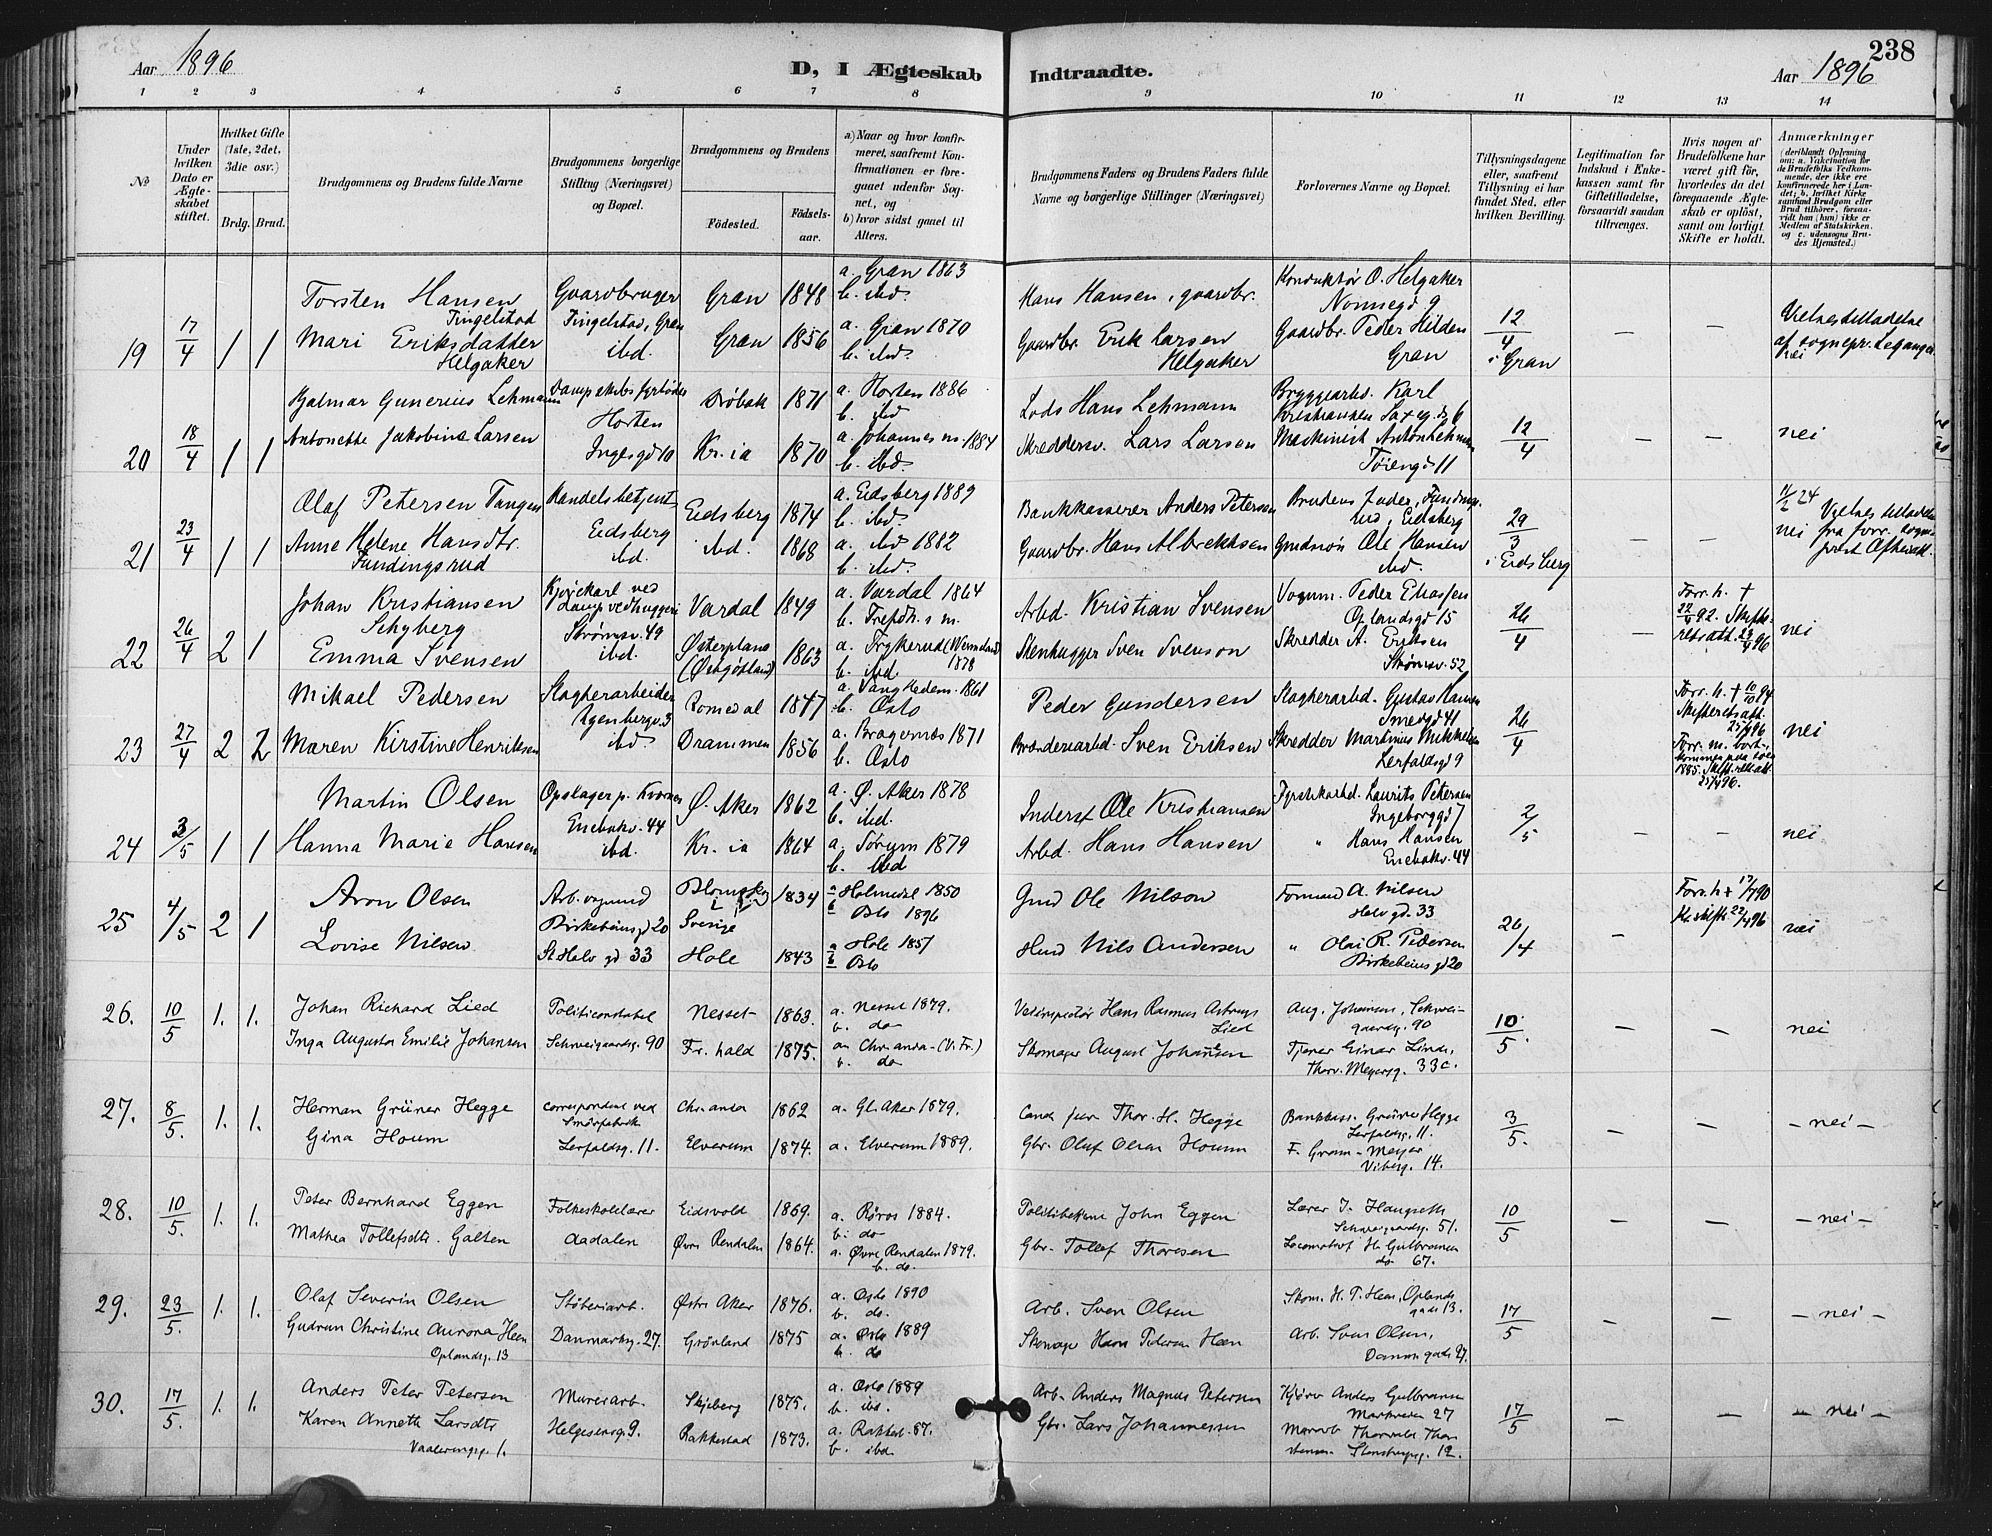 238
Aar 1896
D, I Ægteskab Indtraadte.
Aar 1896
1 2 3 4 5 6 7 8 9 10 11 12 13 14
№
Under hvilken Dato er Ægteskabet stiftet.
Hvilket Gifte (1ste, 2det, 3die osv.)
Brdg. Brud.
Brudgommens og Brudens fulde Navne
Brudgommens borgerlige Stilling (Næringsvei) og Bopæl.
Brudgommens og Brudens
Fødested.
Fødselsaar.
a) Naar og hvor konfirmeret, saafremt Konfirmationen er foregaaet udenfor Sognet, og
b) hvor sidst gaaet til Alters.
Brudgommens Faders og Brudens Faders fulde Navne og borgerlige Stillinger (Næringsvei)
Forlovernes Navne og Bopæl.
Tillysningsdagene eller, saafremt Tillysning ei har fundet Sted, efter hvilken Bevilling.
Legitimation for Indskud i Enkekassen samt for Giftetilladelse, forsaavidt saadan tiltrænges.
Hvis nogen af Brudefolkene har været gift før, hvorledes da det foregaaende Ægteskab er opløst, samt om lovligt Skifte er holdt.
Anmærkninger
(deriblandt Oplysning om: a. Vakcination for de Brudefolks Vedkommende, der ikke ere konfirmerede her i Landet; b. hvilket Kirkesamfund Brudgom eller Brud tilhører, forsaavidt han (hun) ikke er Medlem af Statskirken, og c. udensogns Brudes Hjemsted.)
19 17/4 1 1
Torsten Hansen Tingelstad Gaardbruger Tingelstad, Gran Gran 1848 a. Gran 1863 b. ibd. Hans Hansen, gaardbr. Konduktør O. Helgaker Nonnegd 9
Mari Eriksdatter Helgaker ibd. Gran 1856 a. Gran 1870 b. ibd. Gaardbr. Erik Larsen Helgaker Gaardbr. Peder Hilden Gran 12/4 i Gran — — Vielsestilladelse af sognepr. nei
20 18/4 1 1
Hjalmar Gunerius Lehmann Dampskibsfyrbøder Horten Drøbak 1871 a. Horten 1886 b. ibd. Lods Hans Lehmann Bryggearbd. Karl Kristiansen Saxegd 6
Antonette Jakobine Larsen Ingesgd 10 Kr.ia 1870 a. Johannes m. 1884 b. ibd. Skreddersv. Lars Larsen Maskinist Anton Lehmann Tøiengd 11 12/4 — — nei
21 23/4 1 1
Olaf Petersen Tangen Handelsbetjent Eidsberg Eidsberg 1874 a. Eidsberg 1889 b. ibd. Bankkasserer Anders Petersen Brudens fader, Eidsberg
Anne Helene Hansdtr. Fundingsrud ibd. ibd. 1868 a. ibd 1882 b. ibd. Gaardbr. Hans Albrektsen Ole Hansen ibd. 29/3 i Eidsberg — — nei Vielsestilladelse fra
22 26/4 2 1
Johan Kristiansen Schyberg Kjørekarl ved Dampvedhuggeri Strømsv. 49 Vardal 1849 a. Vardal 1864 b. Trefdh.s m. Arbd. Kristian Svensen Vognm. Peder Eliassen Oplandsgd 15
Emma Svensen ibd. Østerplana (Østgötland) 1863 a. (Wermland) 1878 b. ibd Stenhugger Sven Svenson Skredder A. Eriksen Strømsv. 52 26/4 — Forr. h. † 22/4 92. Skifteretsatt. 23/4 96 nei
23 27/4 2 2
Mikael Pedersen Slagterarbeider Agenbergv. 3 Romedal 1847 a. Vang Hedem. 1861 b. Oslo Peder Gundersen Slagterarbd. Gustav Hansen Smedgd 41
Maren Kirstine Henriksen ibd Drammen 1856 a. Bragernæs 1871 b. Oslo Brænderiarbd. Sven Eriksen Skredder Martinus Mikkelsen Lerfaldsgd 9 26/4 Forr. h. † 10/10 94 Skifteretsatt. 25/4 96 Forr. m. bortkommen paa søen 1885. Skifteretsatt. 25/4 96. nei
24 3/5 1 1
Martin Olsen Opslager p. Kværnes Enebakv. 44 Ø. Aker 1862 a. Ø. Aker 1878 b. ibd. Inderst Ole Kristiansen Fyrstikarbd. Laurits Petersen Ingeborggd 7
Hanna Marie Hansen ibd. Kr.ia 1864 a. Sørum 1879 b. ibd Arbd. Hans Hansen " Hans Hansen Enebakv. 44 2/5 — — nei
25 4/5 2 1
Aron Olsen Arb. vognmd Birkebeinsgd 20 Blomskog i Sverige 1834 a Holmedal 1850 b Oslo 1896 Gmd Ole Nilson Formand A. Nilsen Halvgd. 33
Lovise Nilsen St Halvgd 33 Hole 1843 a Hole 1857 b Oslo Hmd Nils Andersen " Olai R. Pedersen Birkebeinsgd 20 26/4 — Forr. h † 17/7 90 Hr skifte 22/4 96 nei
26. 10/5 1. 1.
Johan Richard Lied Politiconstabel Nesset 1863. a. Nesset 1879. b. do Veiinspektør Hans Rasmus Astrups Lied Aug. Johansen, Schweigaardsg. 90
Inga Augusta Emilie Johansen Schweigaardsg. 90 Fr. hald 1875. a. Chr.ania (V. Fr.) b. do Skomager August Johansen Tjener Einar Linds, Thorv. Meyersg. 33 c. 10/5. — — nei
27. 8/5. 1. 1.
Herman Grüner Hegge Correspondent ved Smørfabrik Chr.ania 1862 a. Gl. Aker 1879. Cand jur Thor. H. Hegge Bankkass. Grüner Hegge Lerfaldsg. 11.
Gina Houm Lerfaldsg. 11. Elverum 1874. a. Elverum 1889. Gbr. Oluf Olsen Houm F. Gram-Meyer Vibesg. 14. 3/5. — — — nei —
28. 10/5. 1. 1.
Peter Bernhard Eggen Folkeskolelærer Eidsvold 1869. a. Røros 1884. b. do Politibetjent John Eggen Lærer I. Haugseth Schweigaardsg. 51.
Mathea Tollefsdtr. Galten Aadalen Øvre Rendalen 1864. a. Øvre Rendalen 1879. b. do. Gbr. Tollef Thoresen Locomotivf H. Gulbransen do 67. 10/5 — — — nei —
29. 23/5. 1. 1.
Olaf Severin Olsen Støberiarb. Østre Aker 1876. a. Oslo 1890 b. do. Arb. Sven Olsen Skom. H. P. Heen, Oplandsgade 13.
Gudrun Christine Aurora Heen Oplandsg. 13 Danmarksg. 27. Grönland 1875 a. Oslo 1889 b. do Skomager Hans Pedersen Heen Arb. Sven Olsen, Danm gade 27. 17/5 — — — nei —
30. 17/5. 1. 1.
Anders Peter Petersen Murerarb. Skjeberg 1875. a. Oslo 1889 b. ibd. Arb. Anders Magnus Petersen Kjører Anders Gulbransen Markveien 27
Karen Annette Larsdtr Vaalerengsg. 1. Helgesensg. 9. Rakkestad 1873. a. Rakkest. 87. b. ibd Gbr. Lars Johannessen Murarb Thorvald Thorstensen Stenstrupsg. 12. 17/5 — — — nei —